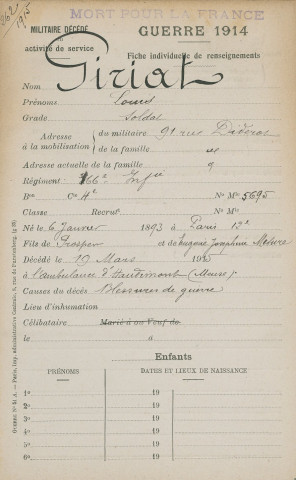 262
1915
MORT POUR LA FRANCE
MILITAIRE DÉCÉDÉ
en
activité de service
GUERRE 1914
Fiche individuelle de renseignements
Nom Piriat
Prénoms Louis
Grade Soldat
Adresse à la mobilisation { du militaire 91 rue Diderot
de la famille
Adresse actuelle de la famille
Régiment: 166e Infie
Bon Cie 4e No Mle 5695
Classe Recrutt No Mle
Né le 6 Janvier 1893 à Paris 12e
Fils de Prosper et de Eugénie Joséphine
Décédé le 19 Mars 1915
à l'ambulance d'Haudimont (Meuse).
Causes du décès Blessures de guerre
Lieu d'inhumation
Célibataire Marié à ou Veuf de
le à
Enfants
PRÉNOMS DATES ET LIEUX DE NAISSANCE
1o 19
2o 19
3o 19
4o 19
5o 19
6o 19